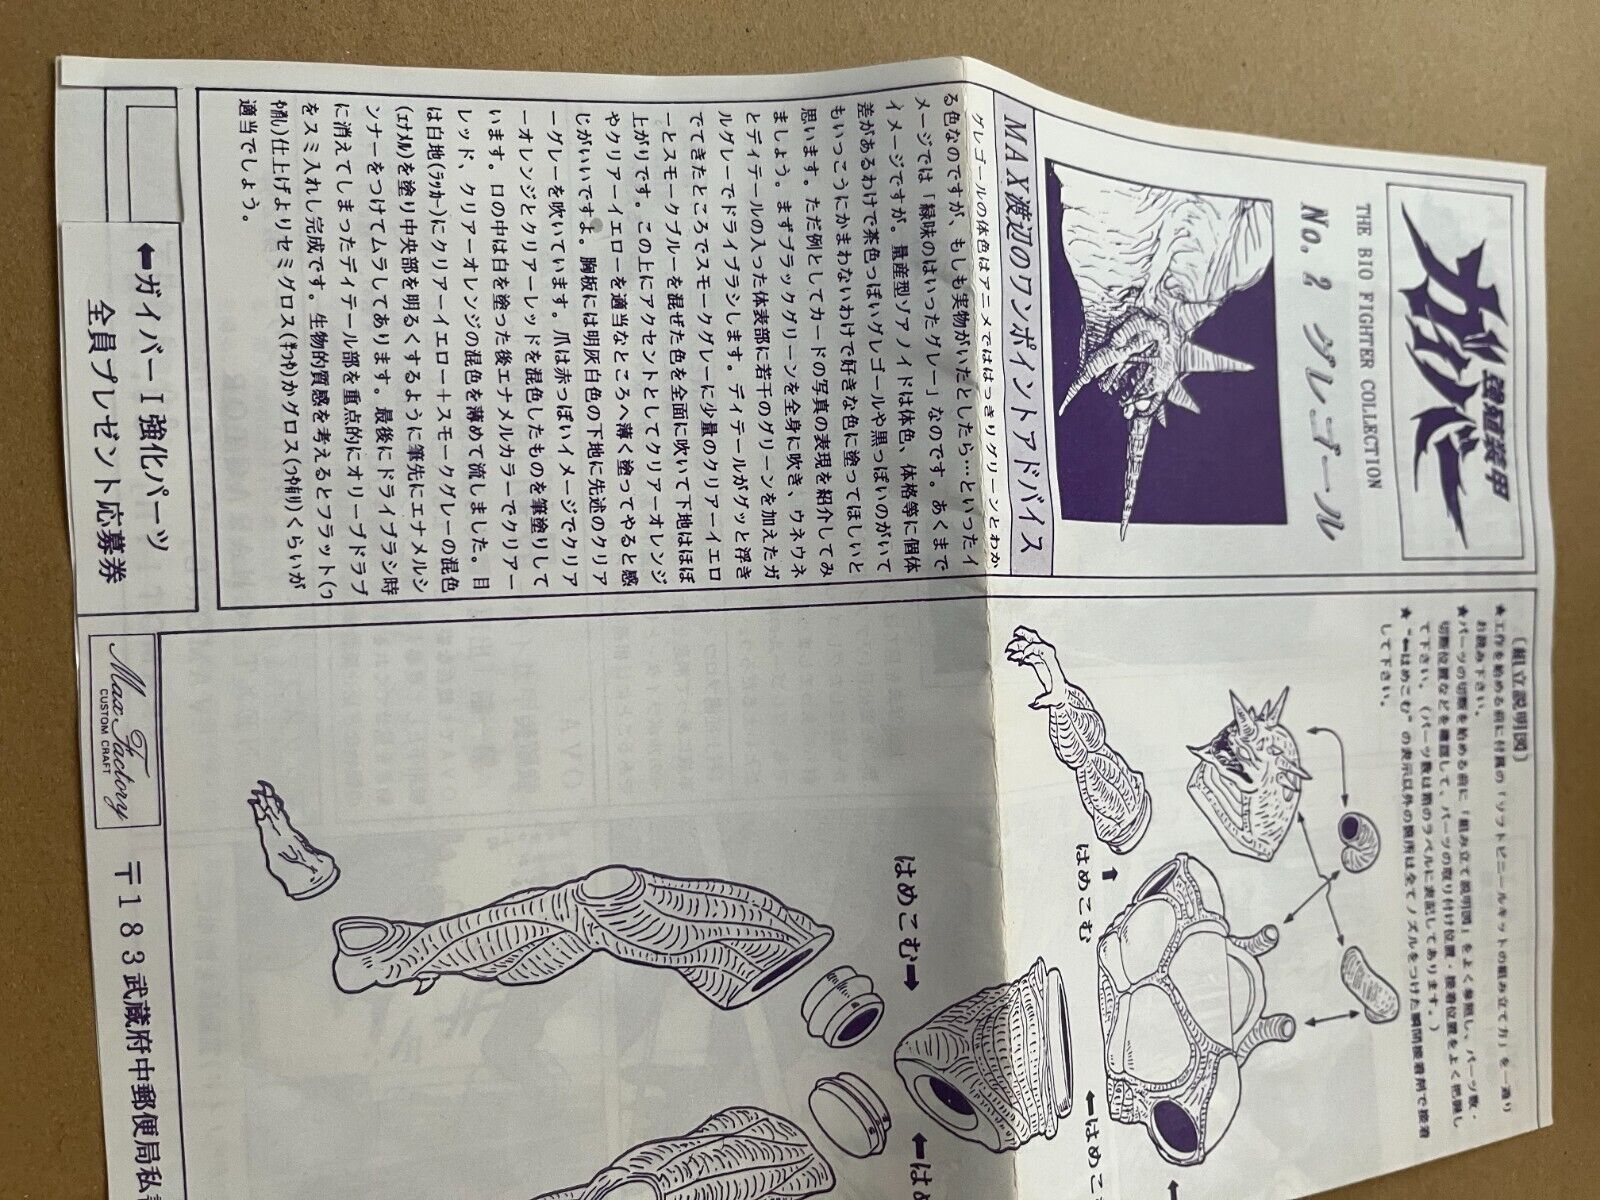 強殖装甲
ガイバー
THE BIO FIGHTER COLLECTION
No. 2 グレゴール
MAX渡辺のワンポイントアドバイス
グレゴールの体色はアニメでははっきりグリーンとわか
る色なのですが、もしも実物がいたとしたら…といったイ
メージでは「緑味のはいったグレー」なのです。あくまで
イメージですが。量産型ゾアノイドは体色、体格等に個体
差があるわけで茶色っぽいグレゴールや黒っぽいのがいて
もいっこうにかまわないわけで好きな色に塗ってほしいと
思います。ただ例としてカードの写真の表現を紹介してみ
ましょう。まずブラックグリーンを全身に吹き、ウネウネ
とディテールの入った体表部に若干のグリーンを加えたガ
ルグレーでドライブラシします。ディテールがグッと浮き
でてきたところでスモークグレーに少量のクリアーイエロ
ーとスモークブルーを混ぜた色を全面に吹いて下地はほぼ
上がりです。この上にアクセントとしてクリアーオレンジ
やクリアーイエローを適当なところへ薄く塗ってやると感
じがいいですよ。胸板には明灰白色の下地に先述のクリア
ーグレーを吹いています。爪は赤っぽいイメージでクリア
ーオレンジとクリアーレッドを混色したものを筆塗りして
います。口の中は白を塗った後エナメルカラーでクリアー
レッド、クリアーオレンジの混色を薄めて流しました。目
は白地(ラッカー)にクリアーイエロー＋スモークグレーの混色
(エナメル)を塗り中央部を明るくするように筆先にエナメルシ
ンナーをつけてムラしてあります。最後にドライブラシ時
に消えてしまったディテール部を重点的にオリーブドラブ
をスミ入れし完成です。生物的質感を考えるとフラット(つ
や消し)仕上げよりセミグロス(半つや)かグロス(つや有り)くらいが
適当でしょう。
⬅ガイバーⅠ強化パーツ
全員プレゼント応募券
〔組立説明図〕
★工作を始める前に付属の「ソフトビニールキットの組み立て方」を一通り
お読み下さい。
★パーツの切断を始める前に「組み立て説明図」をよく参照し、パーツ数・
切断位置などを確認して、パーツの取り付け位置・接着位置をよく把握し
て下さい。（パーツ数は箱のラベルに表記してあります。）
★"⬅はめこむ"の表示以外の箇所は全てノズルをつけた瞬間接着剤で接着
して下さい。
はめこむ
はめこむ
はめこ
は
Max Factory
CUSTOM CRAFT
〒183武蔵府中郵便局私